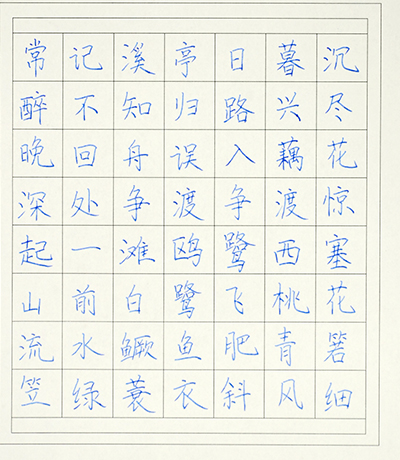 常记溪亭日暮沉
醉不知归路兴尽
晚回舟误入藕花
深处争渡争渡惊
起一滩鸥鹭西塞
山前白鹭飞桃花
流水鳜鱼肥青箬
笠绿蓑衣斜风细